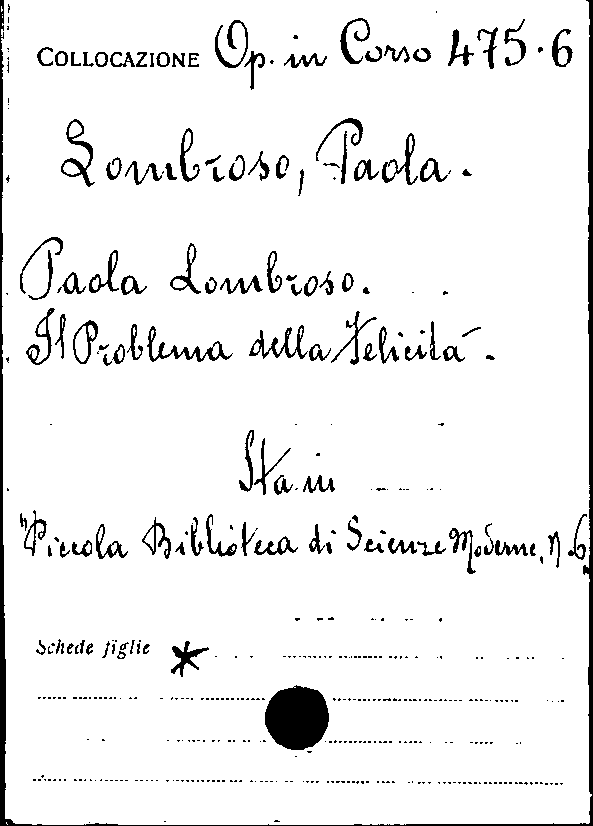 COLLOCAZIONE Op. in Corso 475·6
Lombroso, Paola.
Paola Lombroso.
Il Problema della Felicità.
Sta in
"Piccola Biblioteca di Scienze Moderne, N. 6
Schede figlie *